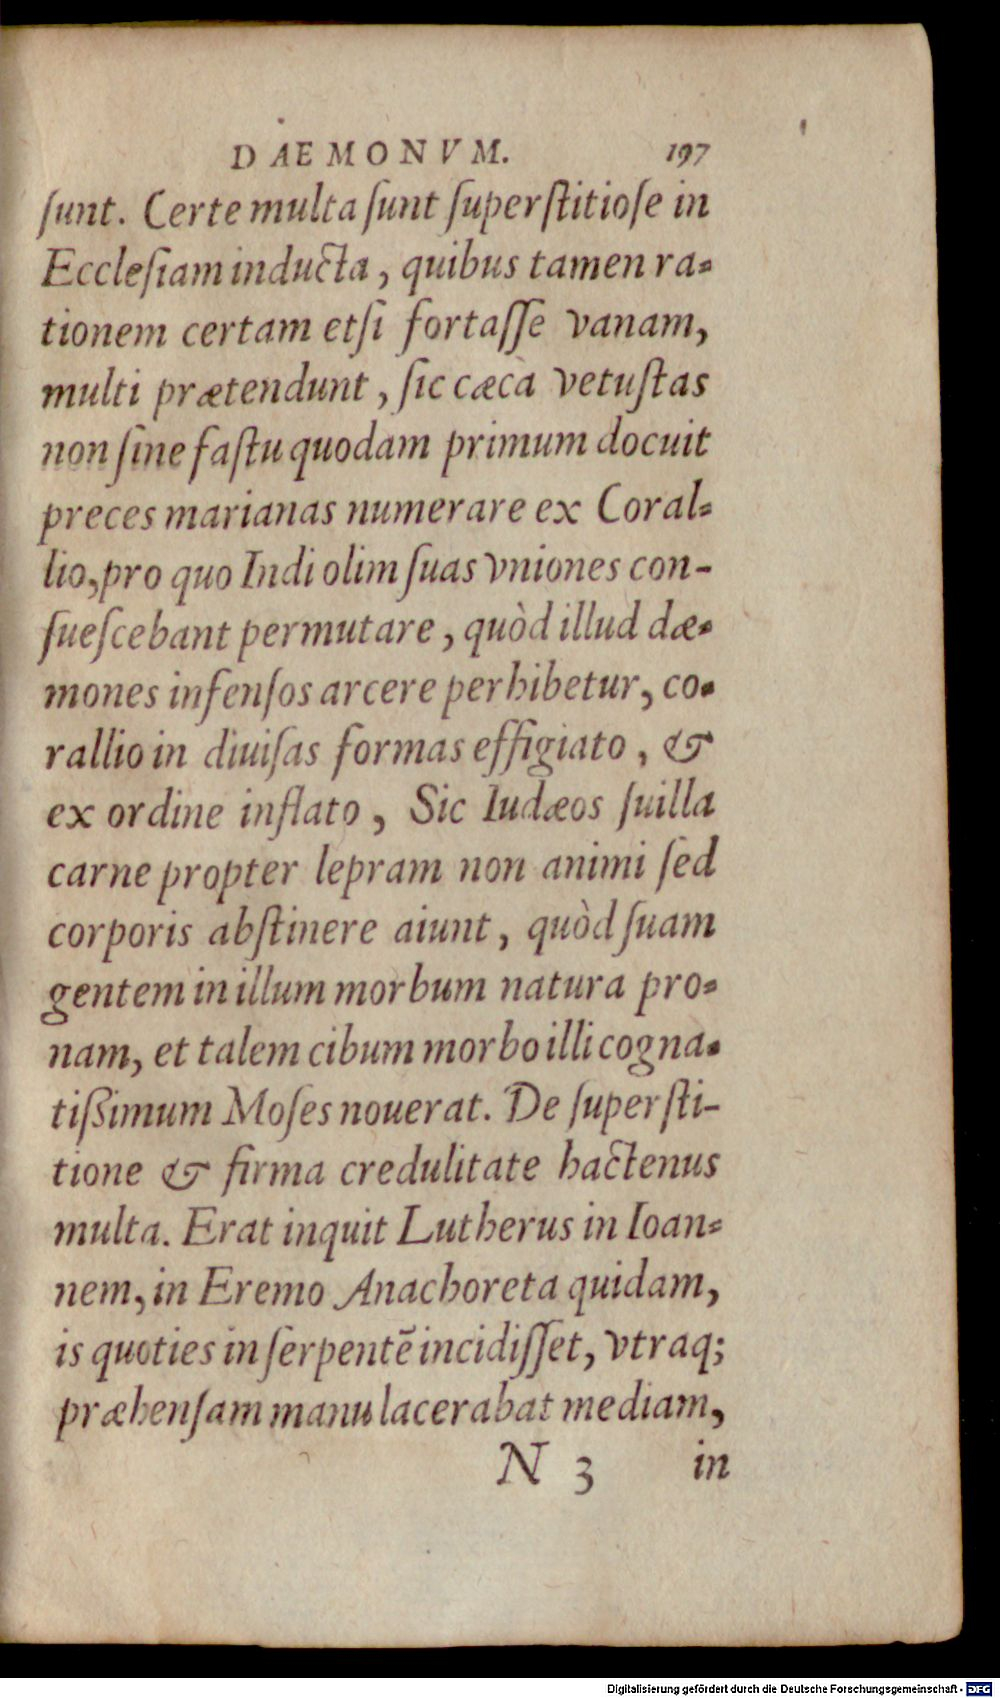 DAEMONVM. 197
ſunt. Certe multa ſunt ſuperſtitioſe in
Eccleſiam inducta, quibus tamen ra-
tionem certam etſi fortaſſe vanam,
multi prætendunt, ſic cæcà vetuſtas
non ſine faſtu quodam primum docuit
preces marianas numerare ex Coral-
lio, pro quo Indi olim ſuas vniones con-
ſueſcebant permutare, quòd illud dæ-
mones infenſos arcere perhibetur, co-
rallio in diuiſas formas effigiato, &
ex ordine inflato, Sic Iudæos ſuilla
carne propter lepram non animi ſed
corporis abſtinere aiunt, quòd ſuam
gentem in illum morbum natura pro-
nam, et talem cibum morbo illi cogna-
tiſsimum Moſes nouerat. De ſuperſti-
tione & firma credulitate hactenus
multa. Erat inquit Lutherus in Ioan-
nem, in Eremo Anachoreta quidam,
is quoties in ſerpentē incidiſſet, vtraq;
præhenſam manu lacerabat mediam,
N 3 in
Digitalisierung gefördert durch die Deutsche Forschungsgemeinschaft - DFG